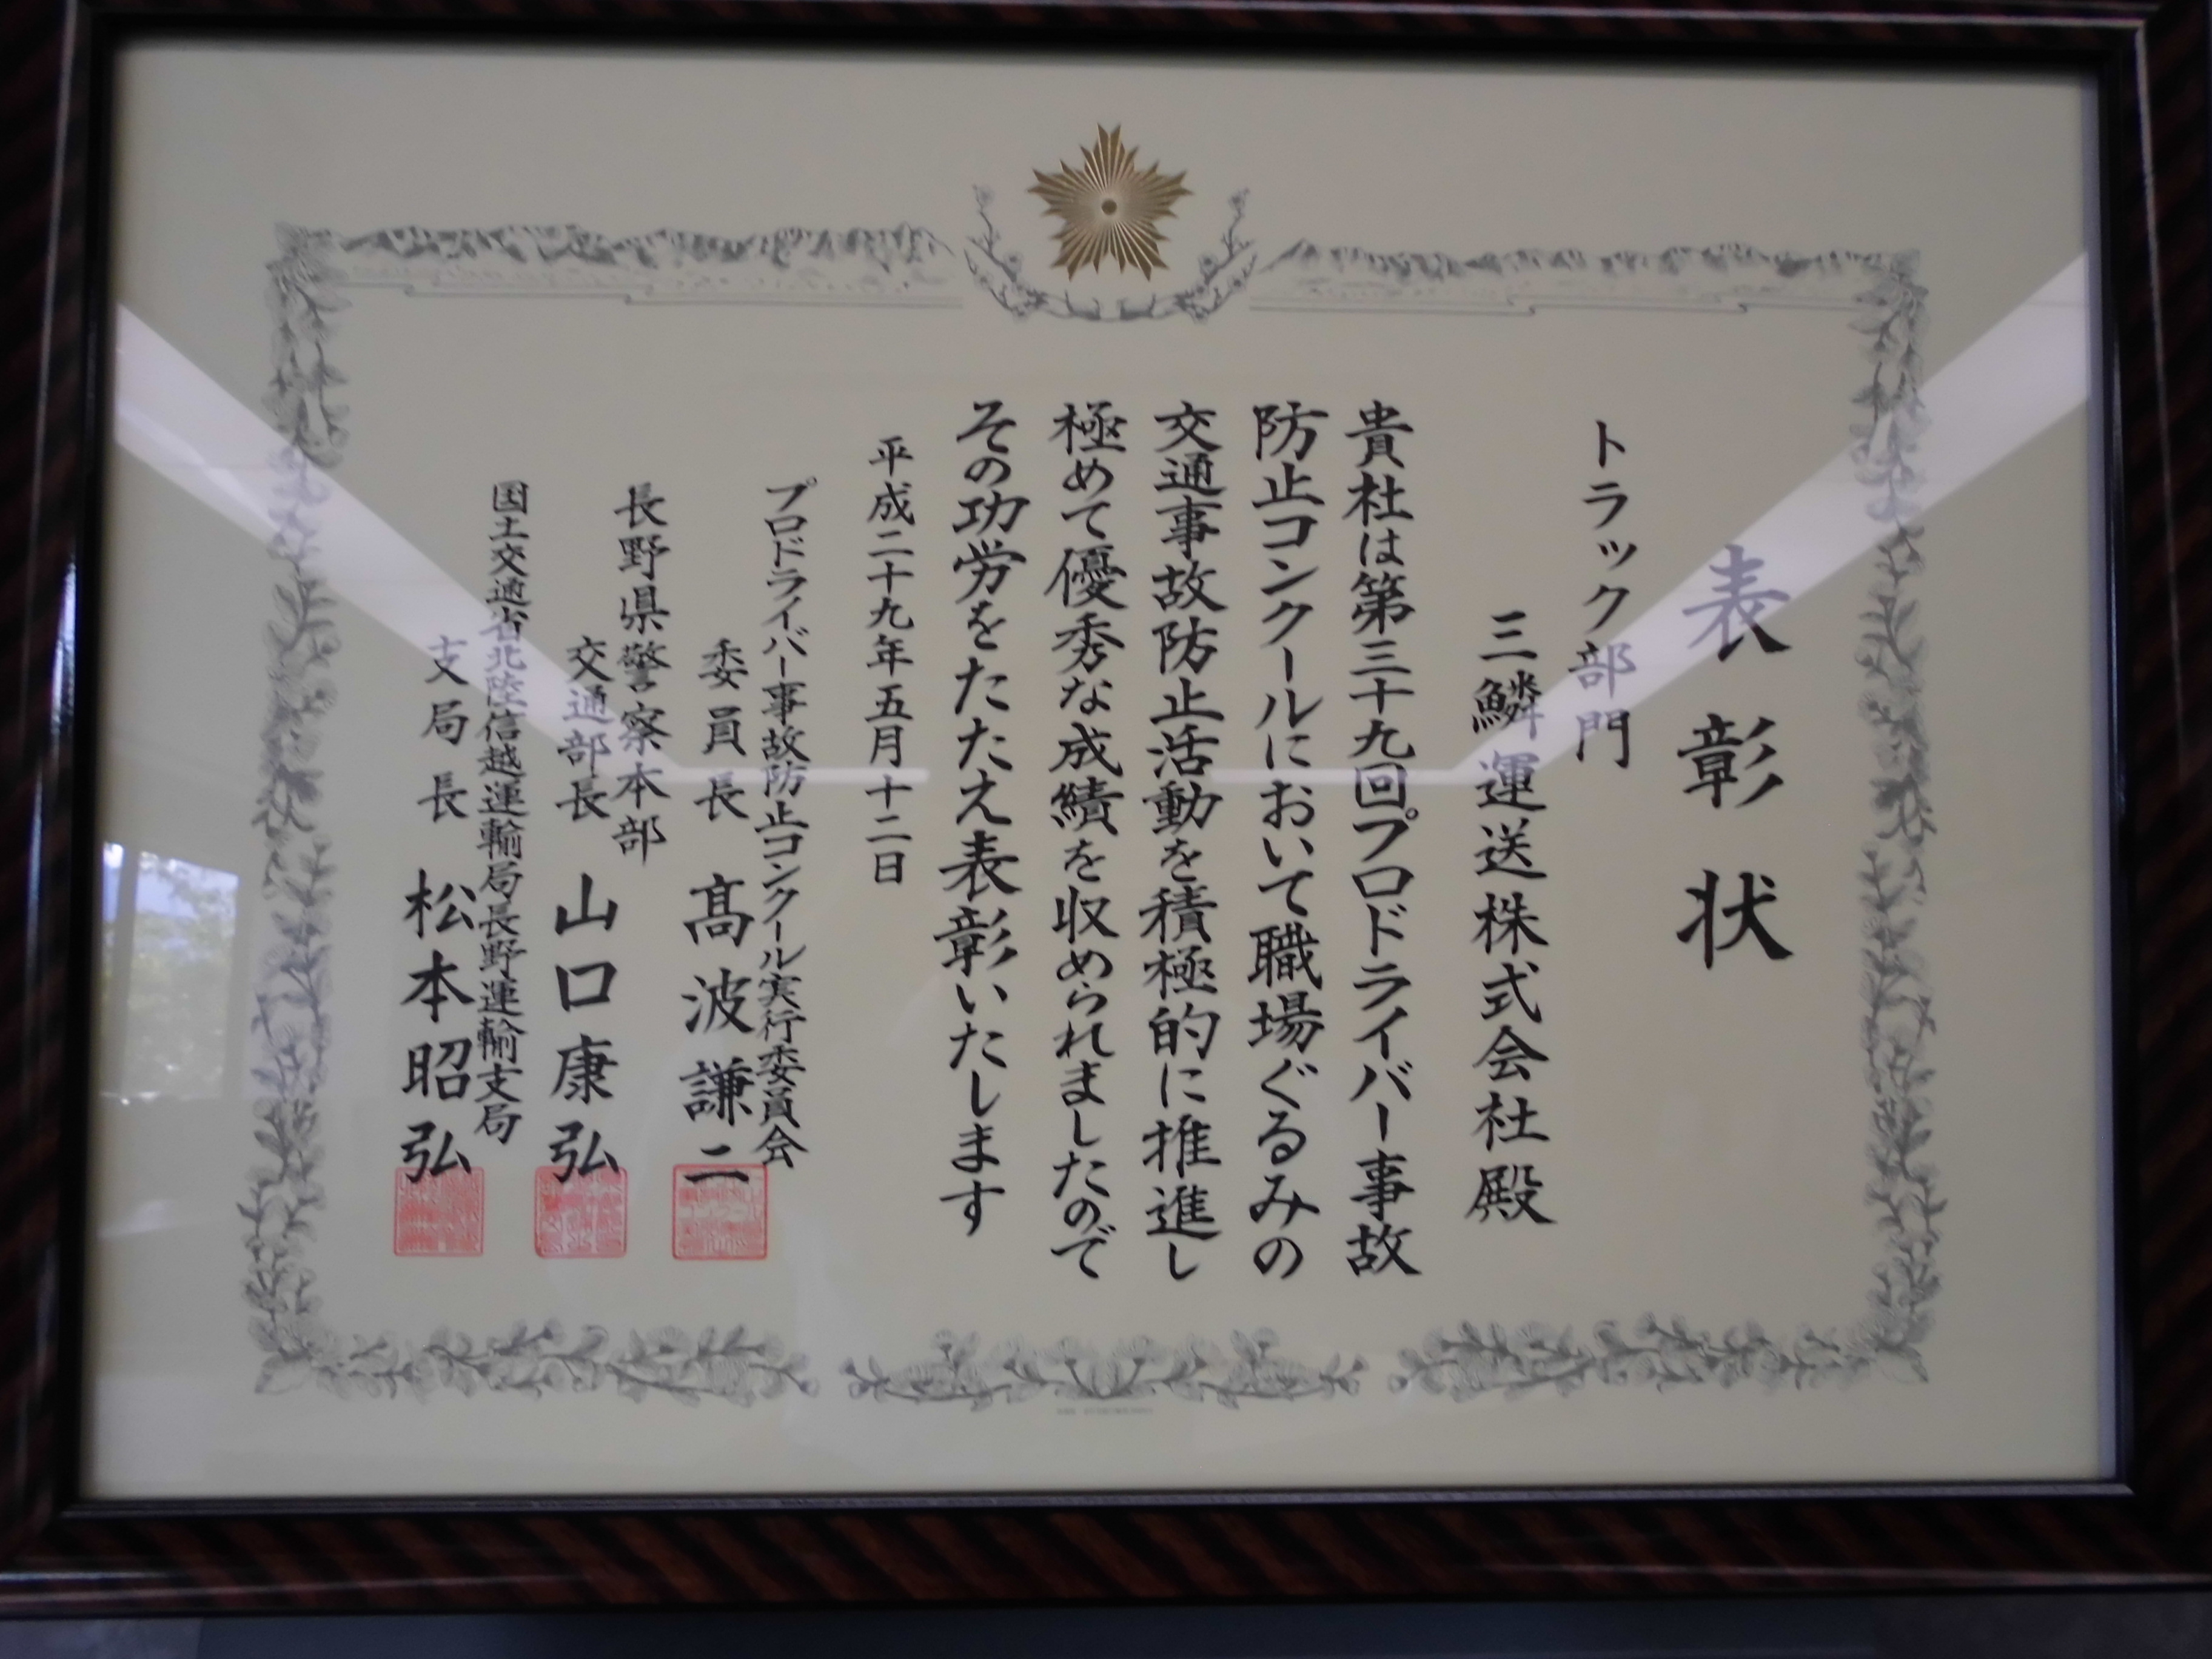 表彰状
トラック部門
三鱗運送株式会社殿
貴社は第三十九回プロドライバー事故
防止コンクールにおいて職場ぐるみの
交通事故防止活動を積極的に推進し
極めて優秀な成績を収められましたので
その功労をたたえ表彰いたします
平成二十九年五月十二日
プロドライバー事故防止コンクール実行委員会
委員長 髙波謙二
長野県警察本部
交通部長 山口康弘
国土交通省北陸信越運輸局長野運輸支局
支局長 松本昭弘